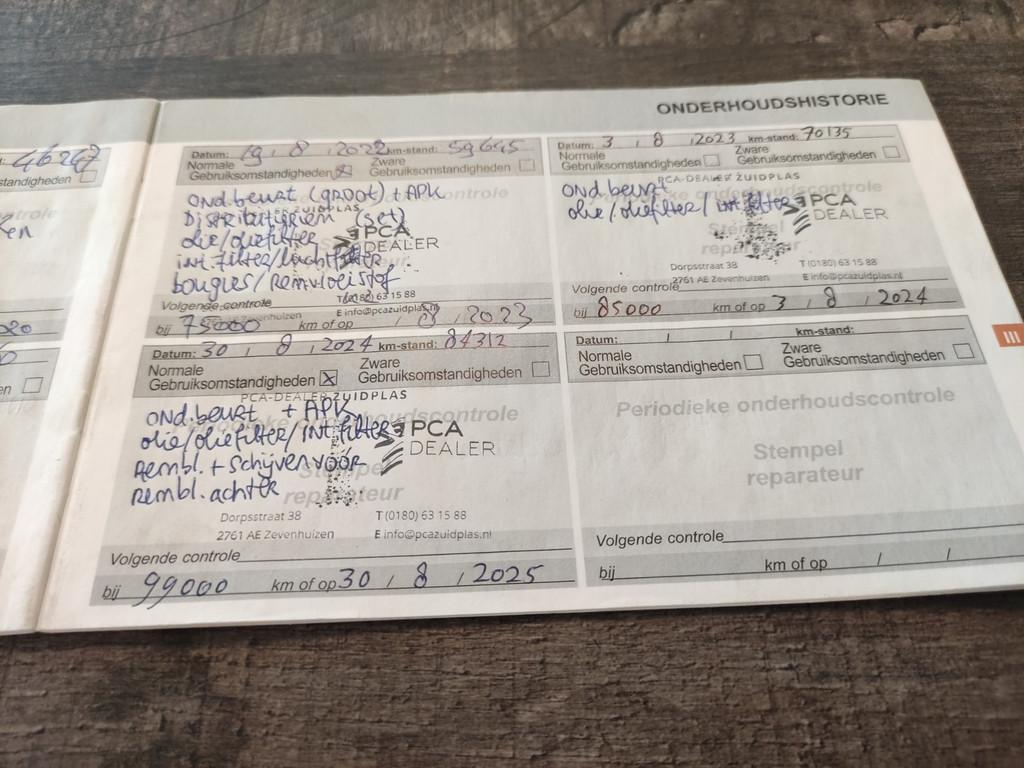 ONDERHOUDSHISTORIE
46247
standigheden
Datum: 19 / 8 / 2022 km-stand: 59645
Normale Gebruiksomstandigheden
Zware Gebruiksomstandigheden
Ond.beurt (groot) + APK
Distributieriem (set)
olie/oliefilter
int.filter/luchtfilter
bougies/Remvloeistof
PCA DEALER
T (0180) 63 15 88
E info@pcazuidplas.nl
Volgende controle
bij 75000 km of op / 8 / 2023
Datum: 3 / 8 / 2023 km-stand: 70135
Normale Gebruiksomstandigheden
Zware Gebruiksomstandigheden
PCA-DEALER ZUIDPLAS
Ond.beurt
olie/oliefilter/int.filter
PCA DEALER
Dorpsstraat 38 T (0180) 63 15 88
2761 AE Zevenhuizen E info@pcazuidplas.nl
Volgende controle
bij 85000 km of op 3 / 8 / 2024
Datum: 30 / 8 / 2024 km-stand: 84312
Normale Gebruiksomstandigheden
Zware Gebruiksomstandigheden
PCA-DEALER ZUIDPLAS
Periodieke onderhoudscontrole
Stempel reparateur
Ond.beurt + APK
olie/oliefilter/int.filter
Rembl. + Schijven voor
Rembl. achter
PCA DEALER
Dorpsstraat 38 T (0180) 63 15 88
2761 AE Zevenhuizen E info@pcazuidplas.nl
Volgende controle
bij 99000 km of op 30 / 8 / 2025
Datum: / / km-stand:
Normale Gebruiksomstandigheden
Zware Gebruiksomstandigheden
Periodieke onderhoudscontrole
Stempel
reparateur
Volgende controle
bij km of op / /
III